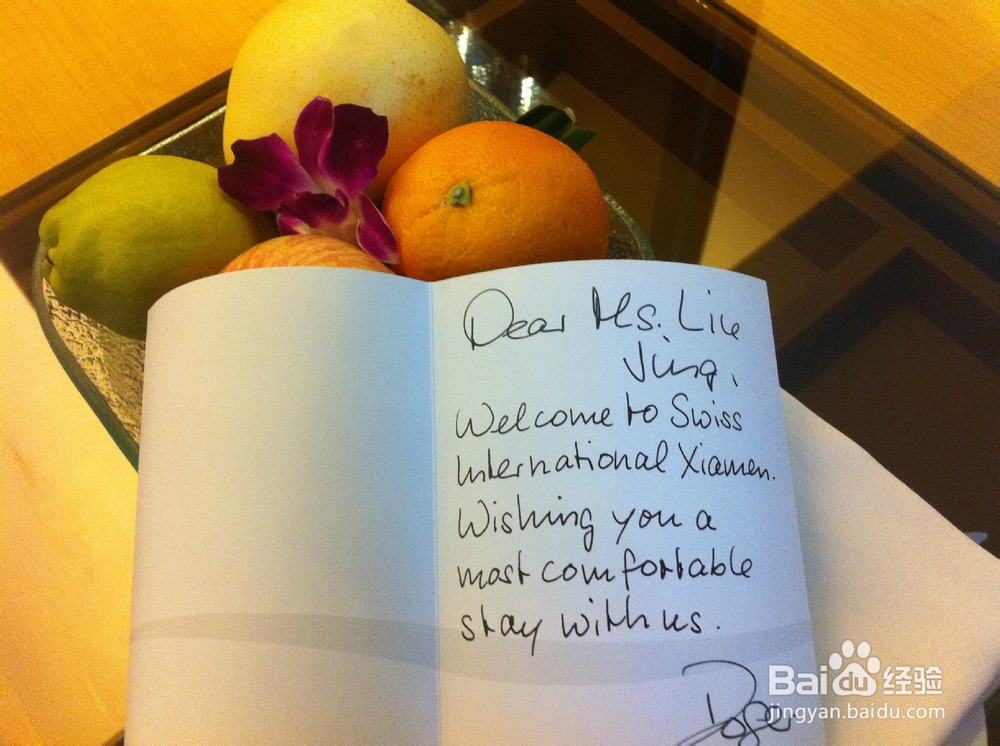 Dear Ms. Liu
Jing,
Welcome to Swiss
International Xiamen.
Wishing you a
most comfortable
stay with us.
Bai du 经验
jingyan.baidu.com